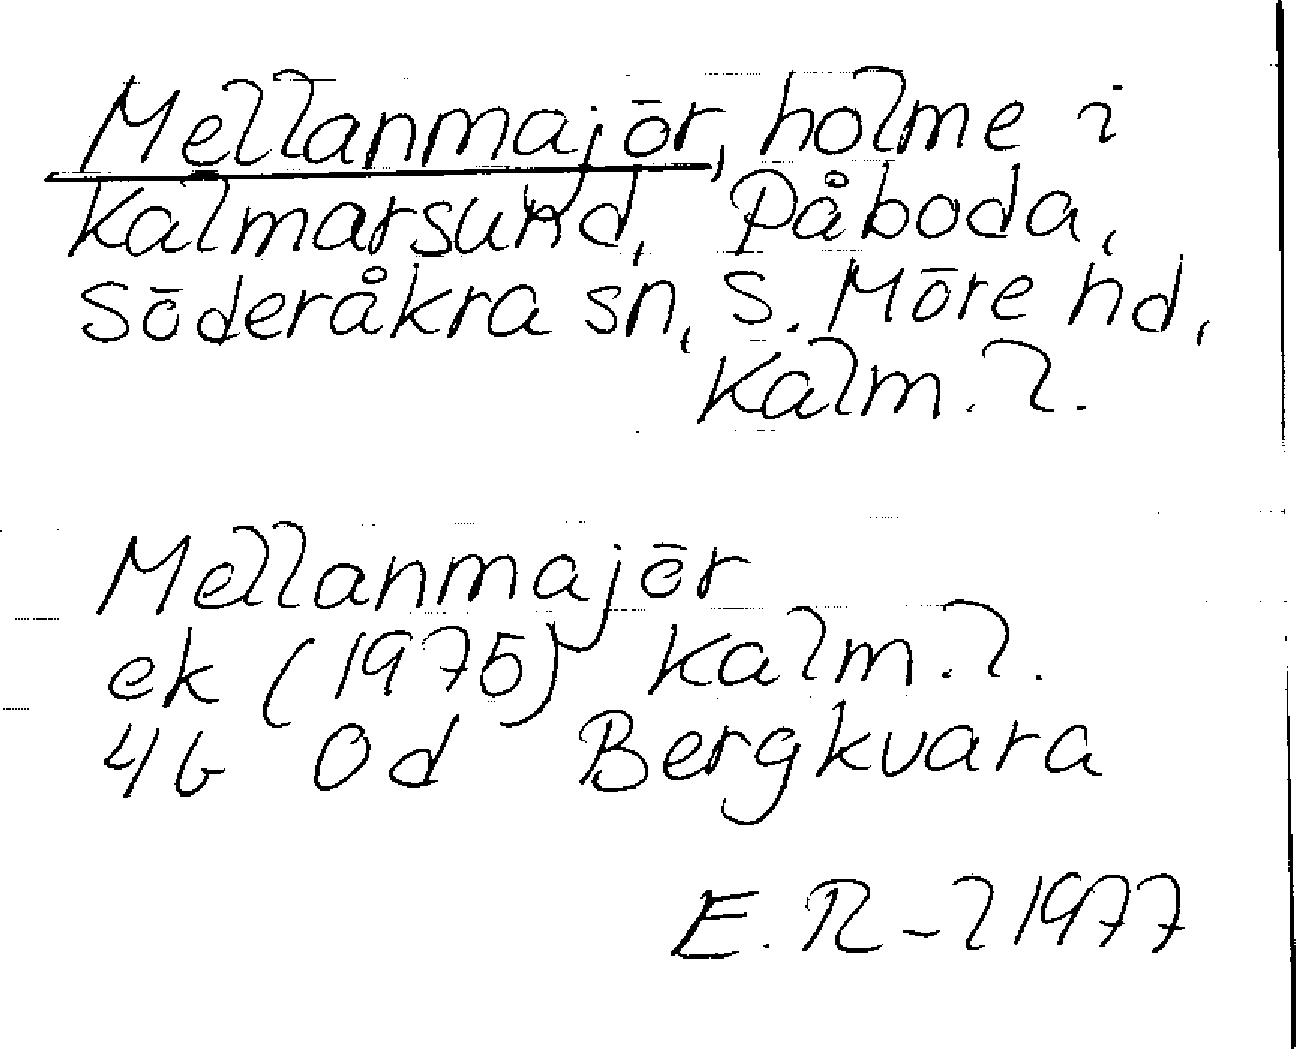 Mellanmajōr, holme i
Kalmarsund, Påboda,
Sōderåkra sn, S. Mōre hd,
Kalm. l.
Mellanmajēr
ek (1975) Kalm. l.
4G Od Bergkvara
E. R-l 1977